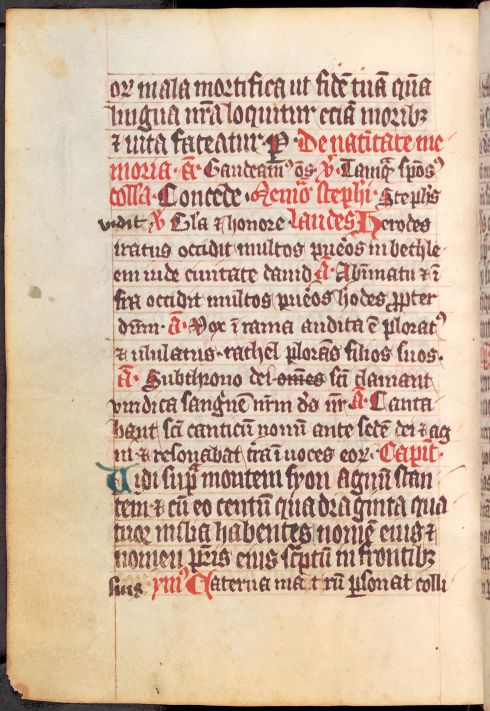 or mala mortifica ut fidē tuā q̄ua
lingua nr̄a loquitur etiā moribꝫ
⁊ uita fateatur · P̄ · De natiītate me
moria · a͞ · Gaudeam⁹ oēs · v̄ · Tamq̄ spōs⁹
colla · Concede · Memō stephi · Stephs
vidit v̄ Gl̄a ⁊ honore · laudes Herodes
iratus occidit multos pueros in bethle
em iude ciuitate dauid · a͞ · A bimatu ⁊ ī
fra occidit multos pueros hodes ꝓpter
dūm · a͞ · Vox ī rama audita ē plorat⁹
⁊ ululatus · rachel plorās filios suos ·
a͞ · Sub throno dei omēs sc̄i clamant
vindica sanguēē nr̄m ds̄ nr̄ a͞ · Canta
bant sc̄i canticū nouū ante sedē dei ⁊ ag
ni ⁊ resonabat tr̄a ī uoces eor · Capit̄ ·
Vidi supra montem syon agnū stan
tem ⁊ cū eo centū quadraginta qua
tuor milia habentes nomē eius ⁊
nomen pr̄is eius sc̄ptū in frontibꝫ
suis · ym⁹ Caterua matrū ꝑsonat colli